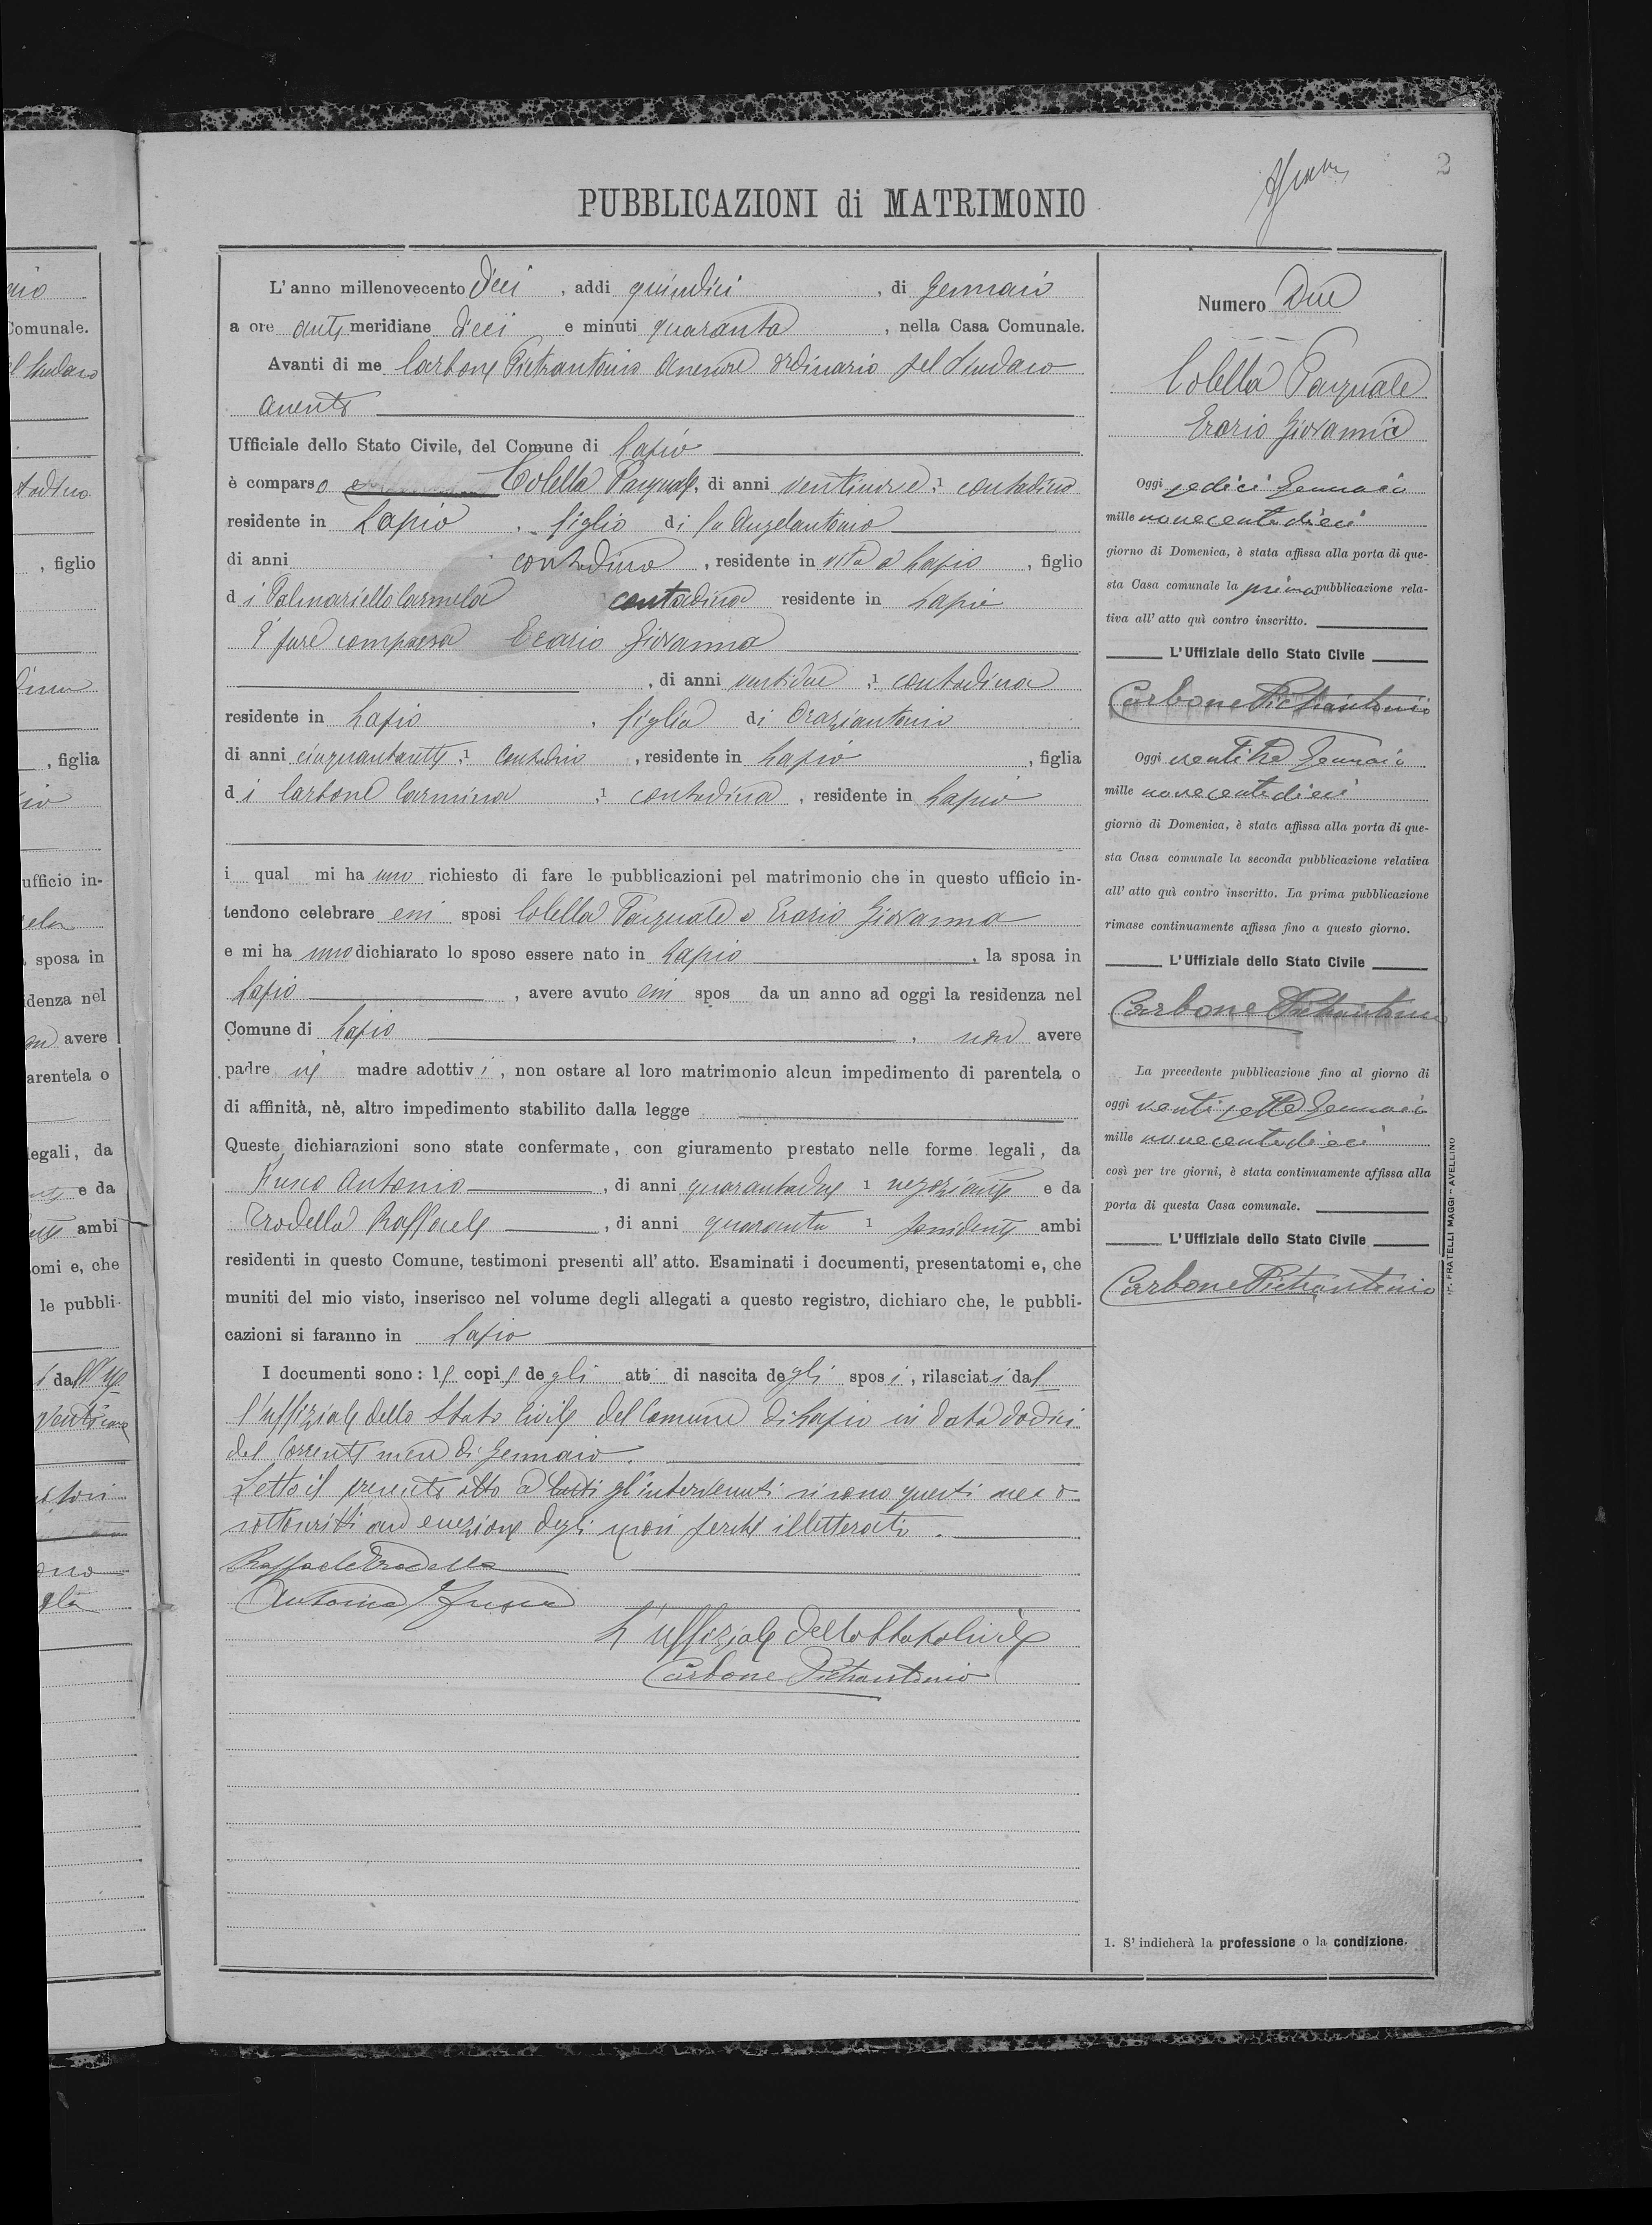 2
PUBBLICAZIONI di MATRIMONIO
L'anno millenovecento dieci, addì quindici, di Gennaio
a ore anti meridiane dieci e minuti quaranta, nella Casa Comunale.
Avanti di me Carbone Pietrantonio Assessore ordinario pel Sindaco
assente
Ufficiale dello Stato Civile, del Comune di Lapio
è comparso Colella Pasquale, di anni ventinove, 1 contadino
residente in Lapio, figlio di fu Angelantonio
di anni contadino, residente in vita a Lapio, figlio
di Palmariello Carmela contadina residente in Lapio
È pure comparsa Erario Giovanna
, di anni ventidue, 1 contadina
residente in Lapio, figlia di Oraziantonio
di anni cinquantasette, 1 contadino, residente in Lapio, figlia
di Carbone Carmina, 1 contadina, residente in Lapio
i qual mi ha nno richiesto di fare le pubblicazioni pel matrimonio che in questo ufficio in-
tendono celebrare essi sposi Colella Pasquale e Erario Giovanna
e mi ha nno dichiarato lo sposo essere nato in Lapio, la sposa in
Lapio, avere avuto essi spos da un anno ad oggi la residenza nel
Comune di Lapio, non avere
padre nè madre adottivi, non ostare al loro matrimonio alcun impedimento di parentela o
di affinità, nè, altro impedimento stabilito dalla legge
Queste dichiarazioni sono state confermate, con giuramento prestato nelle forme legali, da
Antonio, di anni quarantadue 1 negoziante e da
Trodella Raffaele, di anni quaranta 1 possidente ambi
residenti in questo Comune, testimoni presenti all'atto. Esaminati i documenti, presentatomi e, che
muniti del mio visto, inserisco nel volume degli allegati a questo registro, dichiaro che, le pubbli-
cazioni si faranno in Lapio
I documenti sono: le copie degli atti di nascita degli sposi, rilasciati dal
l'uffiziale dello Stato Civile del Comune di Lapio in data dodici
del corrente mese di Gennaio.
Letto il presente atto a tutti gl'intervenuti si sono questi meco
sottoscritti ad eccezione degli sposi perchè illetterati.
Raffaele Trodella
Antonio
L'uffiziale dello Stato Civile
Carbone Pietrantonio
Numero Due
Colella Pasquale
Erario Giovanna
Oggi sedici Gennaio
mille novecentodieci
giorno di Domenica, è stata affissa alla porta di que-
sta Casa comunale la prima pubblicazione rela-
tiva all'atto quì contro inscritto.
L'Uffiziale dello Stato Civile
Carbone Pietrantonio
Oggi ventitre Gennaio
mille novecentodieci
giorno di Domenica, è stata affissa alla porta di que-
sta Casa comunale la seconda pubblicazione relativa
all'atto quì contro inscritto. La prima pubblicazione
rimase continuamente affissa fino a questo giorno.
L'Uffiziale dello Stato Civile
Carbone Pietrantonio
La precedente pubblicazione fino al giorno di
oggi ventisette Gennaio
mille novecentodieci
così per tre giorni, è stata continuamente affissa alla
porta di questa Casa comunale.
L'Uffiziale dello Stato Civile
Carbone Pietrantonio
1. S'indicherà la professione o la condizione.
FRATELLI MAGGI" AVELLINO
Comunale.
, figlio
, figlia
ufficio in-
sposa in
idenza nel
avere
arentela o
egali, da
e da
ambi
omi e, che
le pubbli-